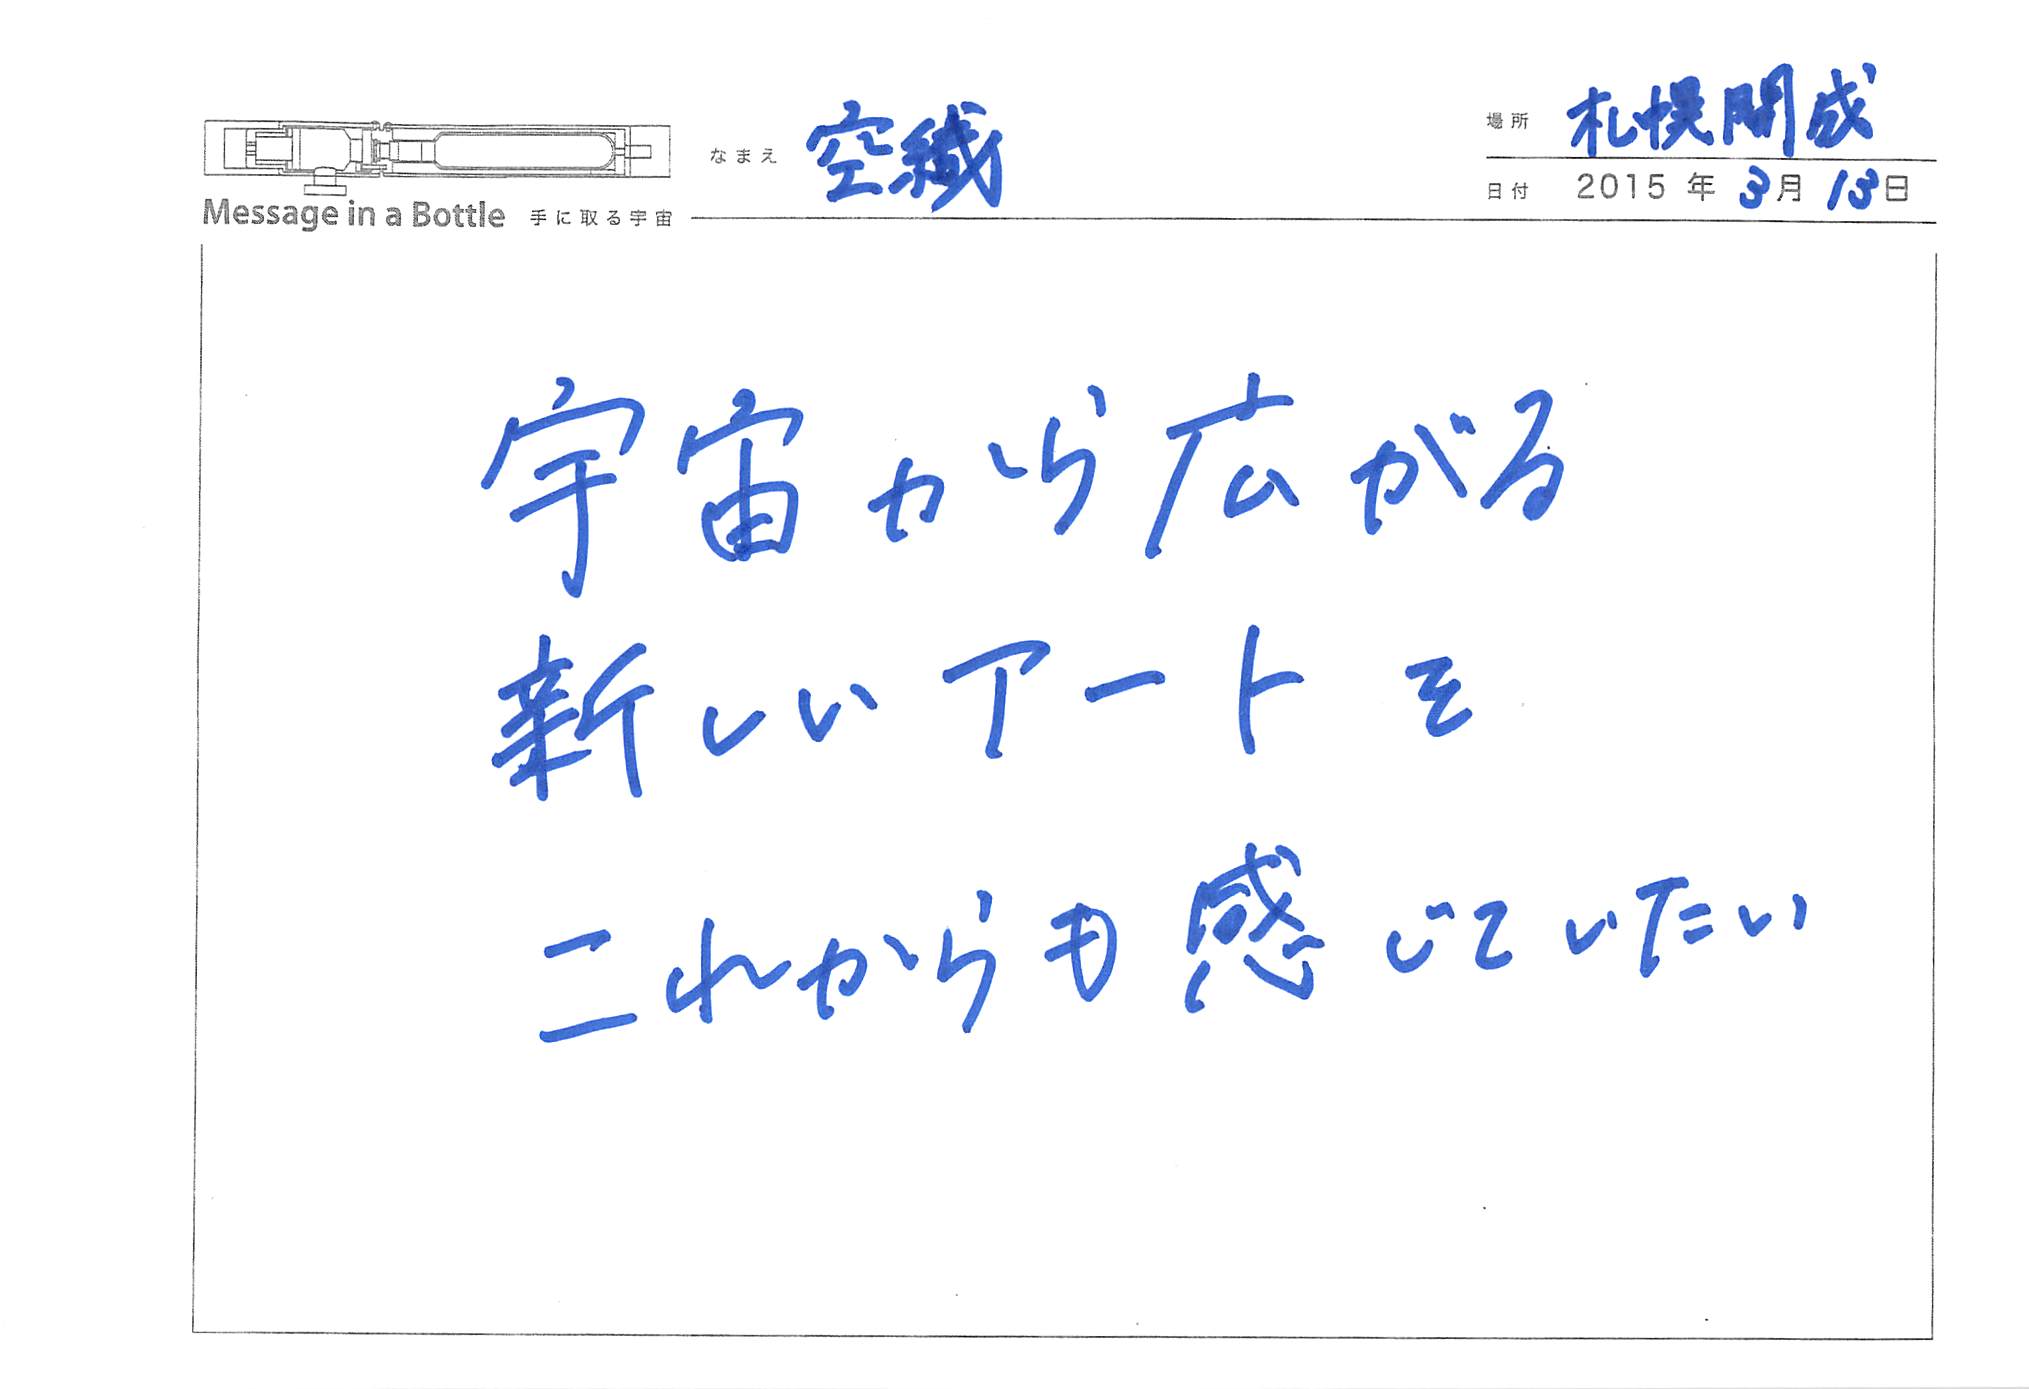 なまえ 空織
場所 札幌開成
日付 2015 年 3月 13日
Message in a Bottle 手に取る宇宙
宇宙から広がる
新しいアートを
これからも感じていたい